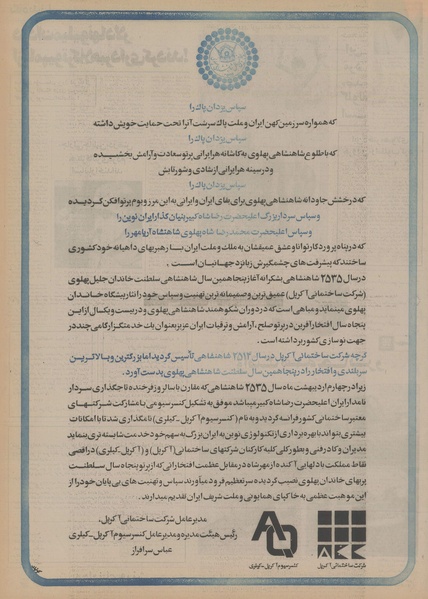 سپاس یزدان پاك را
که همواره سرزمین کهن ایران و ملت پاك سرشت آنرا تحت حمایت خویش داشته
سپاس یزدان پاك را
که با طلوع شاهنشاهی پهلوی به کاشانه هر ایرانی پرتو سعادت و آرامش بخشیــده
و در سینه هر ایرانی از شادی و شور تابش
سپاس یزدان پاك را
که درخشش جاودانه شاهنشاهی پهلوی برای بقای ایران و ایرانی به این مرز و بوم پرتو افکن گردیــده
و سپاس سردار بزرگ اعلیحضرت رضا شاه کبیر بنیان گذار ایران نوین را
و سپاس اعلیحضرت محمد رضا شاه پهلوی شاهنشاه آریامهر را
که در پناه پروردگار توانا و عشق عمیقشان به ملك و ملت ایران با رهبریهای داهیانه خود کشوری
ساختند که پیشرفت های چشمگیرش زبانزد جهانیان اســت .
در سال ۲۵۳۵ شاهنشاهی بشکرانه آغاز پنجاهمین سال شاهنشاهی سلطنت خاندان جلیل پهلوی
(شرکت ساختمانی آ کرپل) عمیق ترین و صمیمانه ترین تهنیت و سپاس خود را نثار پیشگاه خانــدان
پهلوی مینماید و مباهی است که در دوران شکوهمند شاهنشاهی پهلوی و در بیست و یکسال از این
پنجاه سال افتخار آفرین در پرتو صلح ، آرامش و ترقیات ایران عزیز بعنوان یك خدمتگزار گامی چند در
جهت نوسازی کشور برداشته است .
گرچه شرکت ساختمانی آ کرپل در سال ۲۵۱۴ شاهنشاهی تأسیس گردید اما بزرگترین و بالاتریــن
سربلندی و افتخار را در پنجاهمین سال سلطنت شاهنشاهی پهلوی بدست آورد .
زیرا در چهارم اردیبهشت ماه سال ۲۵۳۵ شاهنشاهی که مقارن با سالروز فرخنده تاجگذاری ســردار
نامدار ایران اعلیحضرت رضا شاه کبیر میباشد موفق به تشکیل کنسرسیومی با مشارکت شرکتهـای
معتبر ساختمانی کشور فرانسه گردید و به نام ( کنسرسیوم آ کرپل ـ کیلری ) نامگذاری شد تا با امکانات
بیشتری بتواند با بهره برداری از تکنولوژی نوین به ایران بزرگ به سهم خود خدمت شایسته تری بنماید
مدیران و کادر فنی و بطور کلی کلیه کارکنان شرکتهای ساختمانی (آ کرپل) و ( آ کرپل ـ کیلری) در اقصی
نقاط مملکت با دلهایی آکنده از مهر شاه در مقابل عظمت افتخاراتی که از پرتو پنجاه سال سلطنت
پربهای خاندان پهلوی نصیب گردیده سر تعظیم فرود میآورند سپاس و تهنیت های بی پایان خود را از
این موهبت عظمی به خاکپای همایونی و ملت شریف ایران تقدیم میدارند .
مدیر عامل شرکت ساختمانی آ کرپل ،
رئیس هیئت مدیره و مدیر عامل کنسرسیوم آ کرپل ـ کیلری
عباس سرافراز
AKK
شرکت ساختمانی آ کرپل
کنسرسیوم آ کرپل ـ کیلری